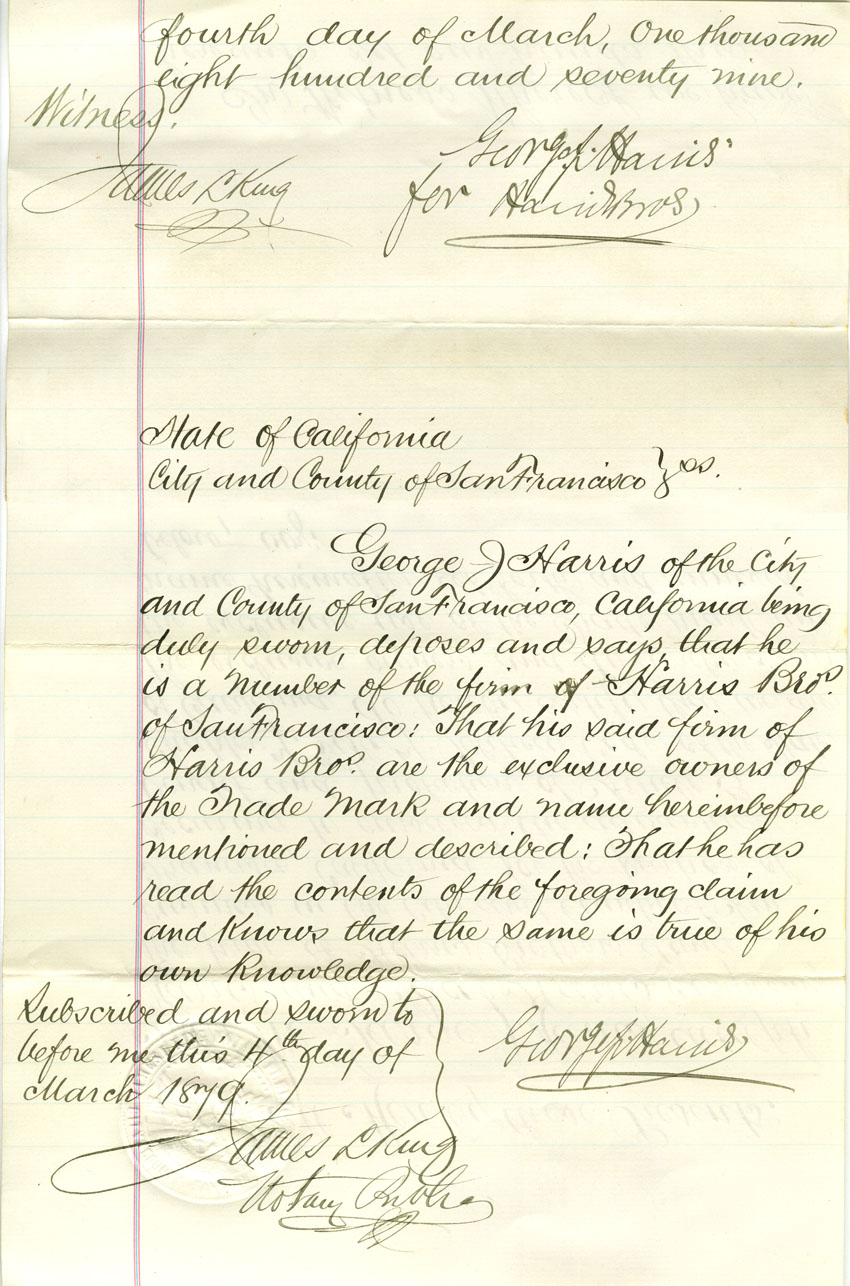 fourth day of March, One thousand
eight hundred and seventy nine.
Witness.
George J. Harris
James L King
for Harris Bros
State of California
City and County of San Francisco } ss.
George J Harris of the City
and County of San Francisco, California being
duly sworn, deposes and says, that he
is a member of the firm of Harris Bros.
of San Francisco: That his said firm of
Harris Bros. are the exclusive owners of
the Trade Mark and name hereinbefore
mentioned and described: That he has
read the contents of the foregoing claim
and knows that the same is true of his
own knowledge.
Subscribed and sworn to
before me this 4th day of
March 1879.
George J. Harris
James L King
Notary Public